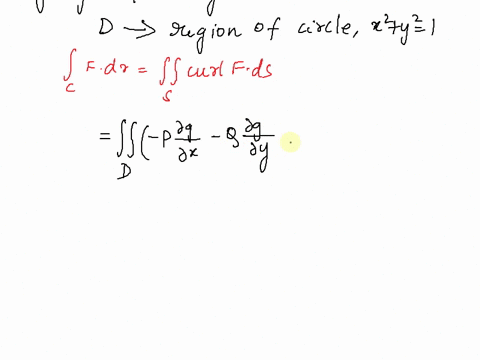 D → region of circle, x²+y²=1
∫_C F·dr = ∬_S curl F·ds
= ∬_D (-P ∂g/∂x - Q ∂g/∂y